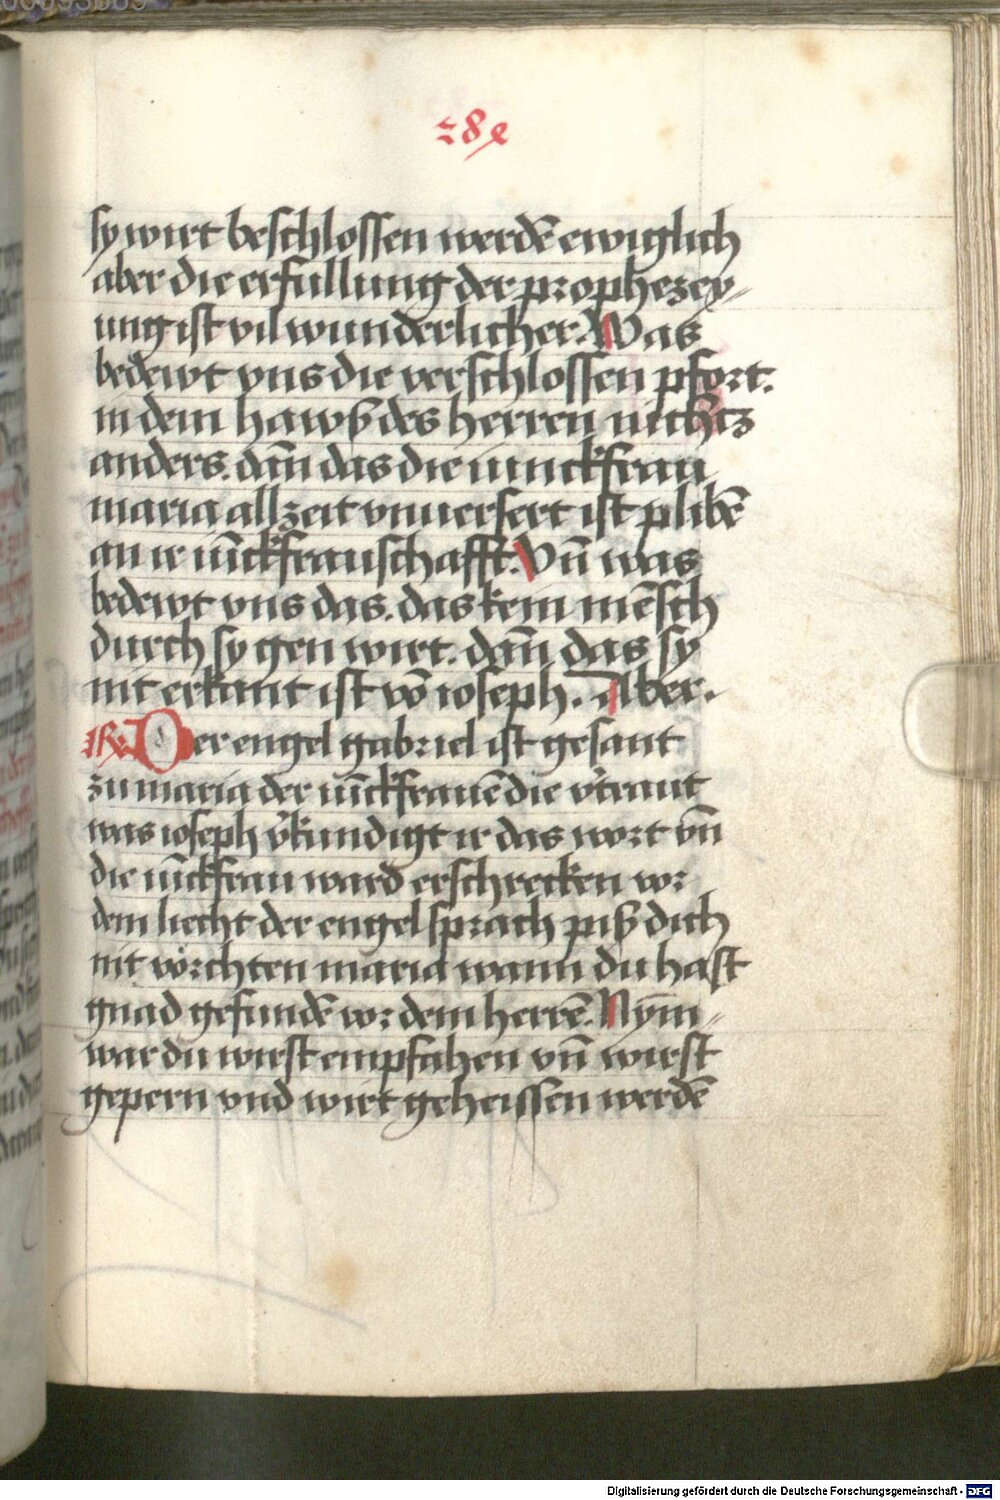 sy wirt beschlossen werdē ewiglich
aber die erfullung der prophezey-
ung ist vil wunderlicher. Was
bedewt vns die verschlossen pfort.
in dem hawß des herren nichtz
anders. dañ das die iunckfrau
maria allzeit vnuersert ist plibē
an ir iūckfrauschafft. Vñ was
bedewt vns das. das kein mēsch
durch sy gen wirt. dañ das sy
nit erkant ist vō ioseph. Aber.
er engel gabriel ist gesant
zu maria der iūckfrauē die v'traut
was ioseph v'kundigt ir das wort vñ
die iūckfrau ward erschrecken vor
dem liecht der engel sprach piß dich
nit vörchten maria wann du hast
gnad gefundē vor dem herrē. Nym̄-
war du wirst empfahen vñ wirst
gepern vnd wirt geheissen werdē
Digitalisierung gefördert durch die Deutsche Forschungsgemeinschaft - DFG